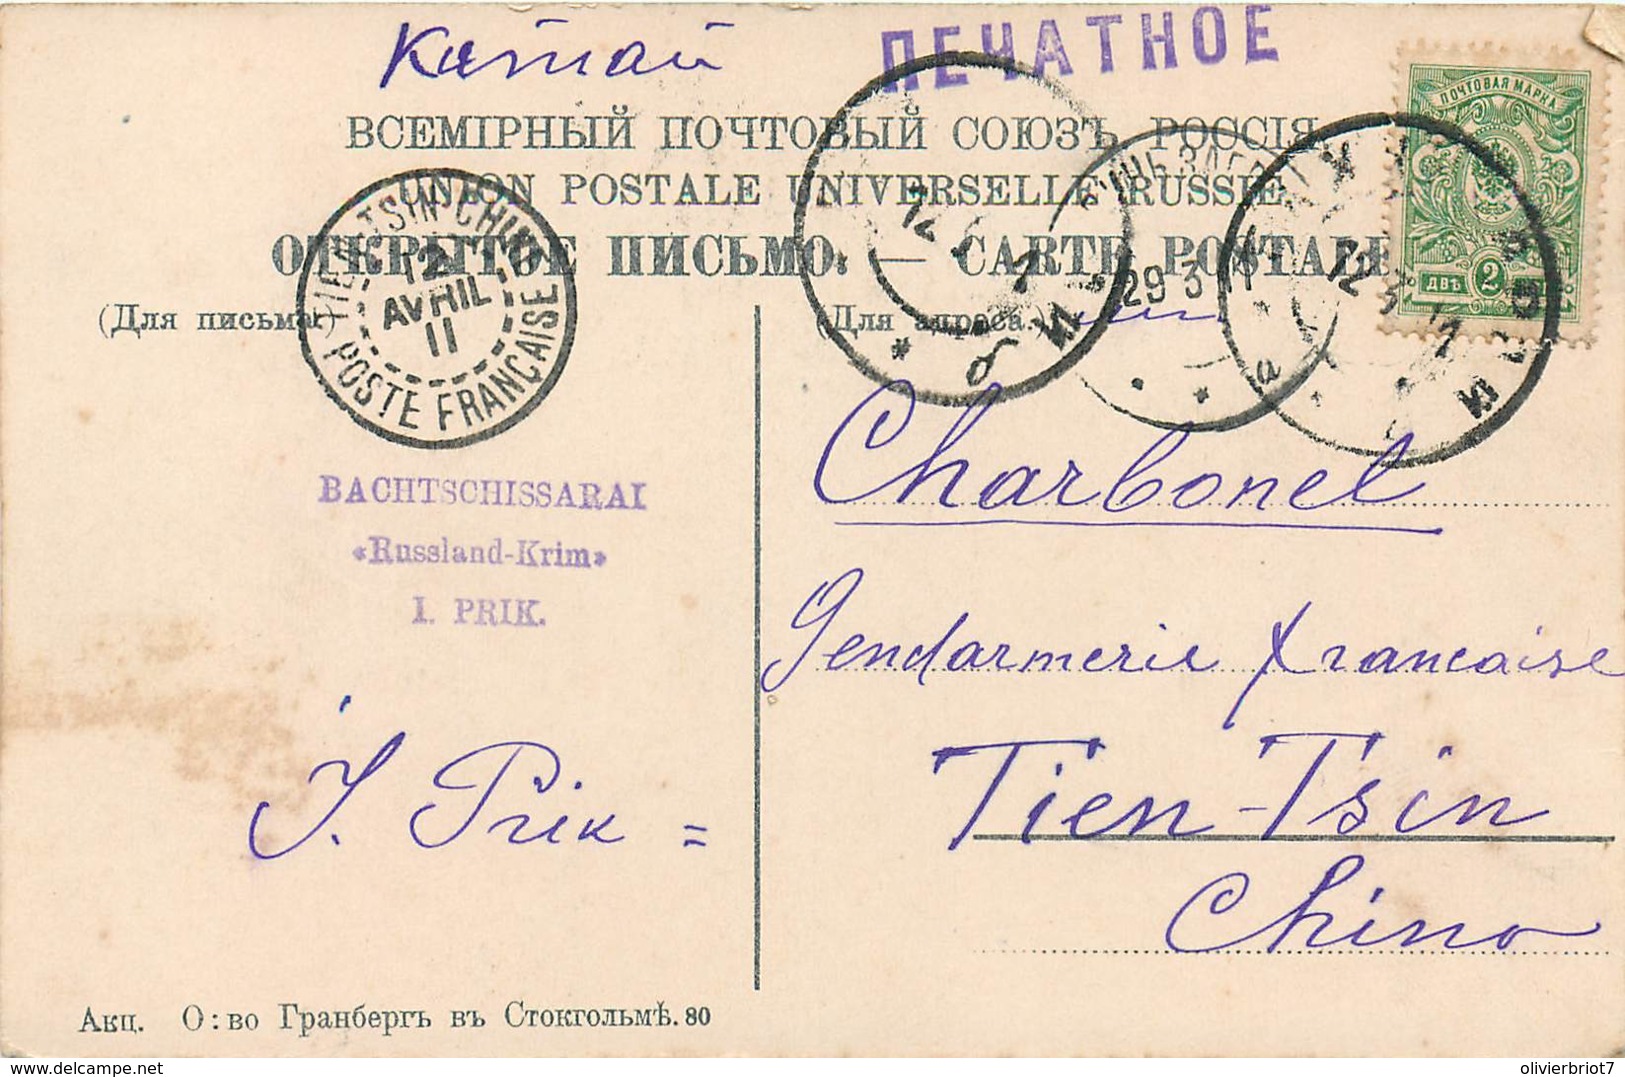 Китай
ПЕЧАТНОЕ
ПОЧТОВАЯ МАРКА
ВСЕМІРНЫЙ ПОЧТОВЫЙ СОЮЗЪ РОССІЯ
UNION POSTALE UNIVERSELLE RUSSIE
ОТКРЫТОЕ ПИСЬМО. — CARTE POSTALE
ДВѢ 2
TIEN-TSIN-CHINE
12
AVRIL
11
POSTE FRANÇAISE
12 3
б
29 3 11
12 3 11
а
(Для письма)
(Для адреса)
Charbonel
BACHTSCHISSARAI
«Russland-Krim»
I. PRIK.
Gendarmerie francaise
J. Prik =
Tien-Tsin
Chine
Акц. О:во Гранбергъ въ Стокгольмѣ. 80
delcampe.net
olivierbriot7